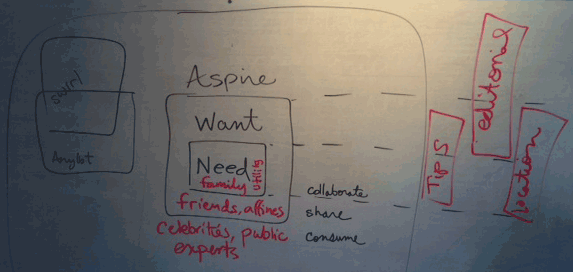 swrl
Anglet
Aspire
Want
Need
utility
family
friends, affines
celebrités, public
experts
collaborate
share
consume
Tips
editorial
location